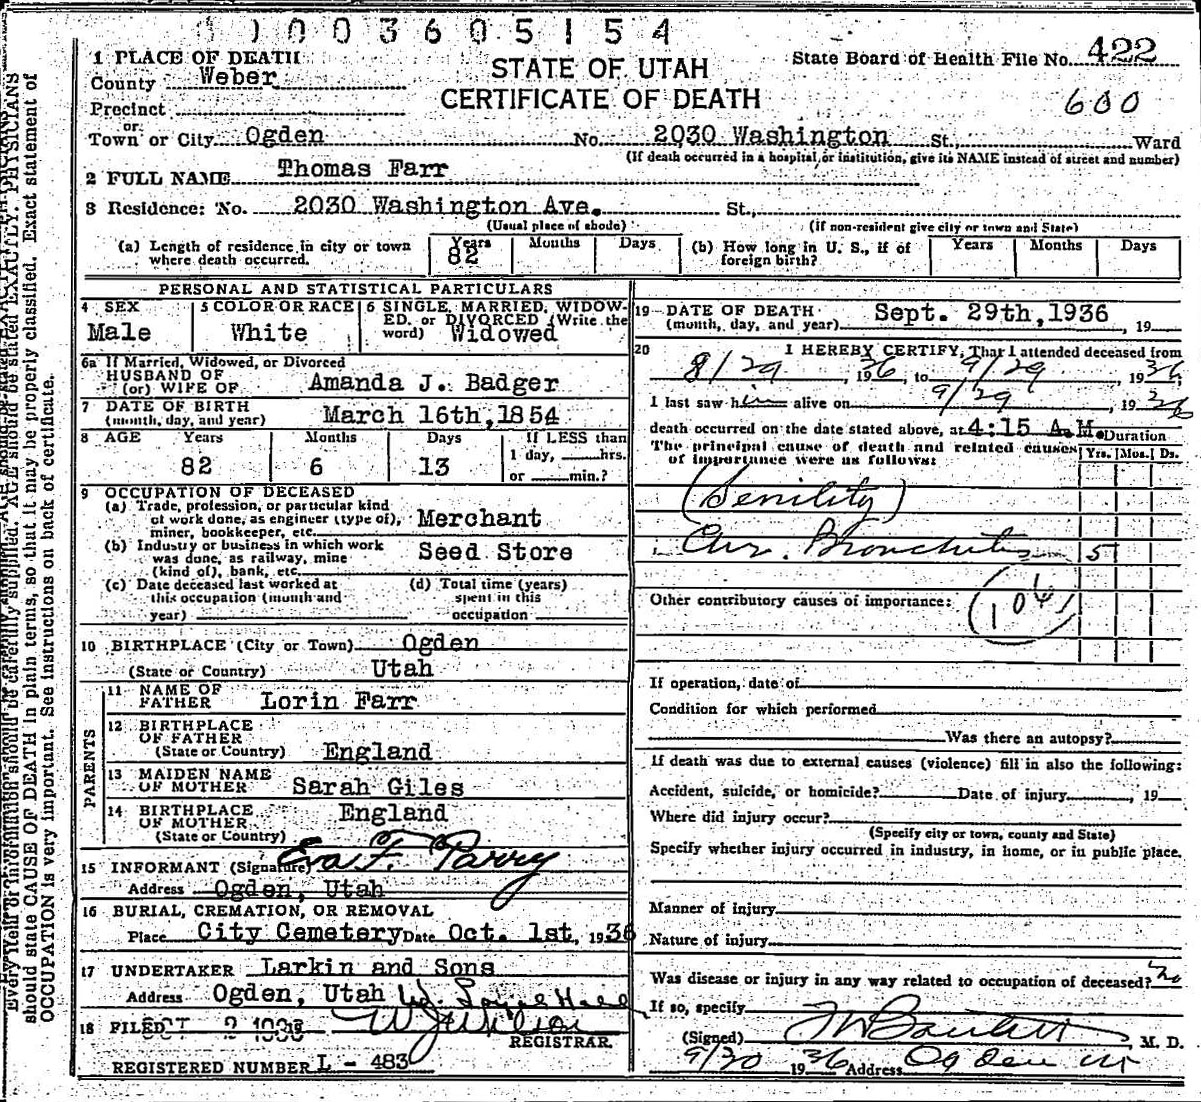 1003605154
1 PLACE OF DEATH
County Weber
Precinct
or
Town or City Ogden No. 2030 Washington St., Ward
STATE OF UTAH
CERTIFICATE OF DEATH
State Board of Health File No. 422
600
(If death occurred in a hospital or institution, give its NAME instead of street and number)
2 FULL NAME Thomas Farr
3 Residence: No. 2030 Washington Ave. St.,
(Usual place of abode) (If non-resident give city or town and State)
(a) Length of residence in city or town where death occurred. Years 82 Months Days
(b) How long in U. S., if of foreign birth? Years Months Days
PERSONAL AND STATISTICAL PARTICULARS
4 SEX Male
5 COLOR OR RACE White
6 SINGLE, MARRIED, WIDOWED, or DIVORCED (Write the word) Widowed
6a If Married, Widowed, or Divorced
HUSBAND OF
(or) WIFE OF Amanda J. Badger
7 DATE OF BIRTH
(month, day, and year) March 16th, 1854
8 AGE Years Months Days If LESS than
82 6 13 1 day, hrs.
or min.?
9 OCCUPATION OF DECEASED
(a) Trade, profession, or particular kind
of work done, as engineer (type of),
miner, bookkeeper, etc. Merchant
(b) Industry or business in which work
was done, as railway, mine
(kind of), bank, etc. Seed Store
(c) Date deceased last worked at
this occupation (month and
year)
(d) Total time (years)
spent in this
occupation
10 BIRTHPLACE (City or Town) Ogden
(State or Country) Utah
PARENTS
11 NAME OF
FATHER Lorin Farr
12 BIRTHPLACE
OF FATHER
(State or Country) England
13 MAIDEN NAME
OF MOTHER Sarah Giles
14 BIRTHPLACE
OF MOTHER
(State or Country) England
15 INFORMANT (Signature) Eva F. Parry
Address Ogden, Utah
16 BURIAL, CREMATION, OR REMOVAL
Place City Cemetery Date Oct. 1st, 1936
17 UNDERTAKER Larkin and Sons
Address Ogden, Utah
18 FILED OCT 2 1936 W J Wilson
REGISTRAR.
REGISTERED NUMBER L - 483
19 DATE OF DEATH
(month, day, and year) Sept. 29th, 1936, 19
20 I HEREBY CERTIFY, That I attended deceased from
8/29, 1936, to 9/29 1936,
I last saw him alive on 9/29, 1936
death occurred on the date stated above, at 4:15 A.M. Duration
The principal cause of death and related causes Yrs. Mos. Ds.
of importance were as follows:
(Senility)
Chr. Bronchitis 5
106
Other contributory causes of importance:
If operation, date of
Condition for which performed
Was there an autopsy?
If death was due to external causes (violence) fill in also the following:
Accident, suicide, or homicide? Date of injury, 19
Where did injury occur?
(Specify city or town, county and State)
Specify whether injury occurred in industry, in home, or in public place.
Manner of injury
Nature of injury
Was disease or injury in any way related to occupation of deceased? No
If so, specify
(Signed) , M. D.
9/30 1936 Address Ogden Ut
should state CAUSE OF DEATH in plain terms, so that it may be properly classified. Exact statement of
OCCUPATION is very important. See instructions on back of certificate.